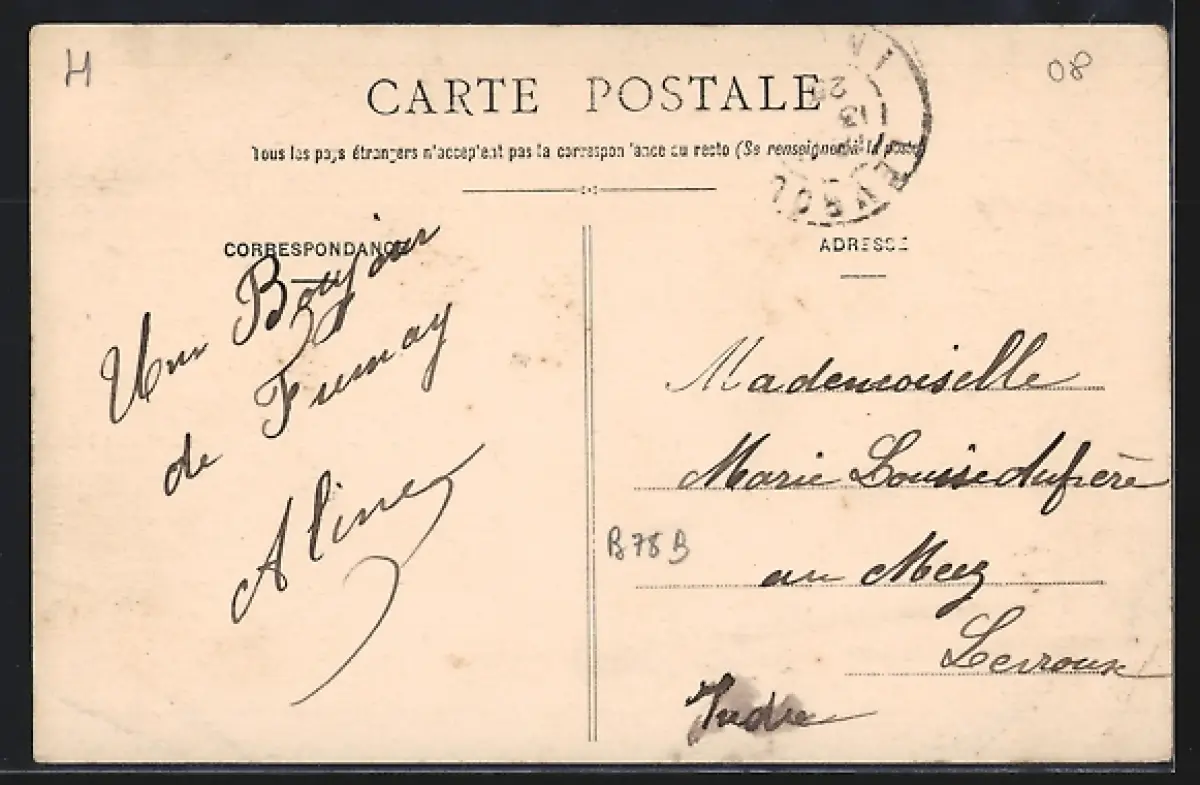 H
08
CARTE POSTALE
Tous les pays étrangers n'acceptent pas la correspondance au recto (Se renseigner à la poste)
CORRESPONDANCE
Un Boujour
de Fumay
Aline
ADRESSE
Mademoiselle
Marie Louise dufrère
B78B
au Mez
Levroux
Indre